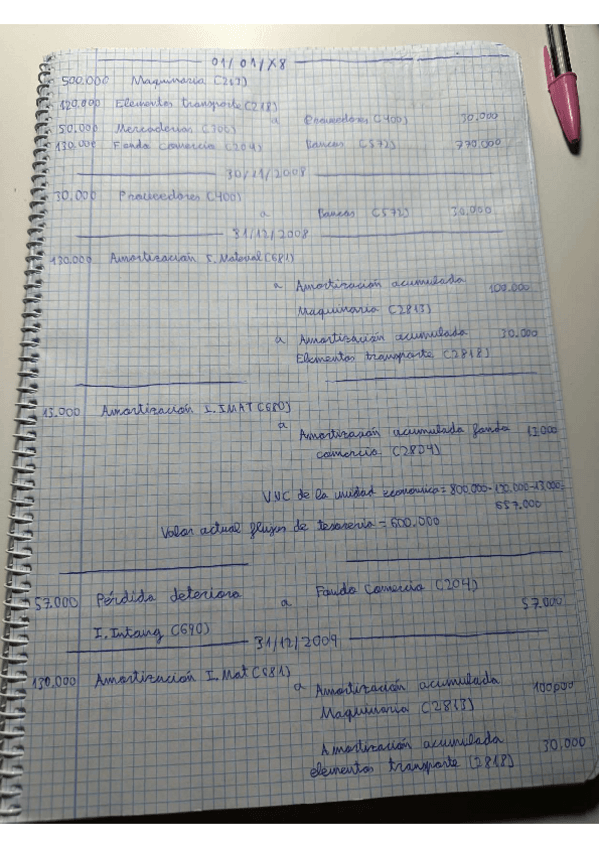 01/01/X8
500.000 Maquinaria (213)
120.000 Elementos transporte (218)
a Proveedores (400) 30.000
50.000 Mercaderías (300)
130.000 Fondo Comercio (204) Bancos (572) 770.000
30/11/2008
30.000 Proveedores (400)
a Bancos (572) 30.000
31/12/2008
130.000 Amortización I. Material (681)
a Amortización acumulada 100.000
Maquinaria (2813)
a Amortización acumulada 30.000
Elementos transporte (2818)
13.000 Amortización I. IMAT (680)
a
Amortización acumulada fondo 13.000
comercio (2804)
VNC de la unidad económica = 800.000-130.000-13.000=
657.000
Valor actual flujos de tesorería = 600.000
57.000 Pérdida deterioro a Fondo Comercio (204) 57.000
I. Intang (690)
31/12/2009
130.000 Amortización I. Mat (681)
a Amortización acumulada 100.000
Maquinaria (2813)
Amortización acumulada 30.000
elementos transporte (2818)